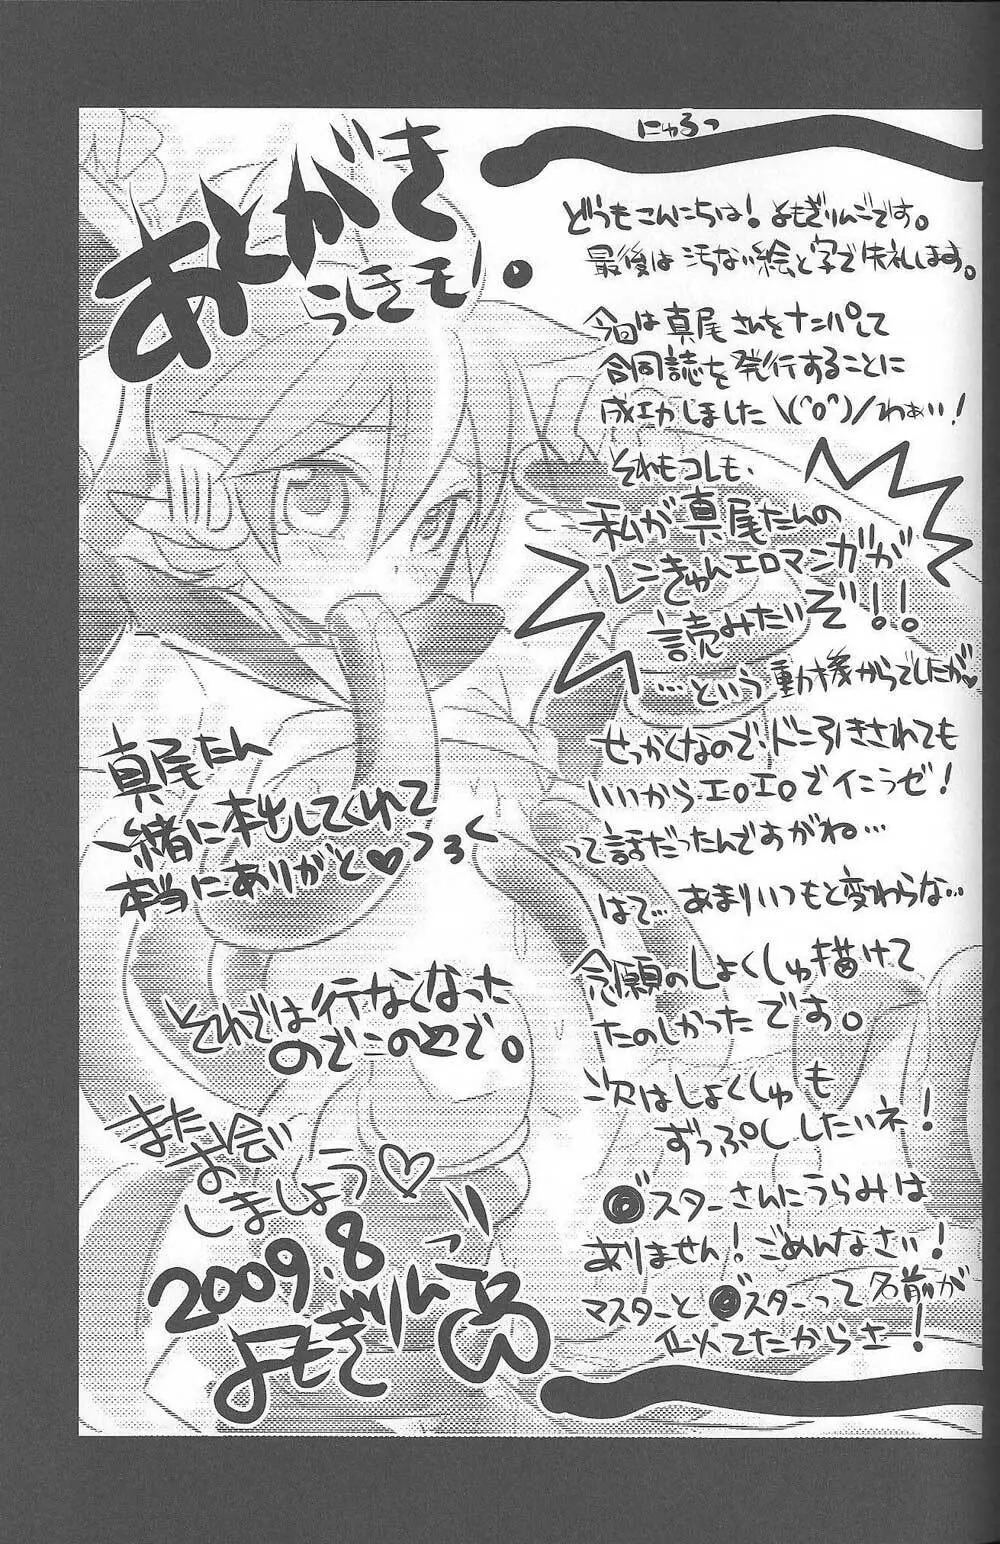 にゅるっ
あとがき
らしきモノ。
どうもこんにちは!よもぎりんごです。
最後は汚ない絵と字で失礼します。
今回は真尾さんをナンパして
合同誌を発行することに
成功しました\(^o^)/わぁい!
それもコレも、
私が真尾たんの
レンきゅんエロマンガが
読みたいぞ!!
…という動機からでしたが♥
せっかくなので、ドン引きされても
いいからエロエロでイこうぜ!
って話だったんですがね…
はて…あまりいつもと変わらな…
念願のしょくしゅ描けて
たのしかったです。
次はしょくしゅも
ずっぷししたいネ!
◎スターさんにうらみは
ありません!ごめんなさい!
マスターと◎スターって名前が
似てたからさ!
真尾たん
一緒に本出してくれて
本当にありがと♡
それでは行なくなった
のでこのへんで。
また
お会い
しましょう♡
2009.8
よもぎりんご